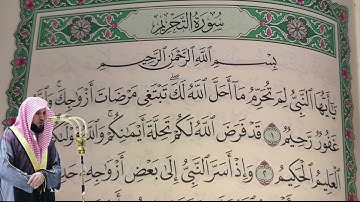 سُورَةُ التَّحْرِيمِ
بِسْمِ اللَّهِ الرَّحْمَٰنِ الرَّحِيمِ
يَا أَيُّهَا النَّبِيُّ لِمَ تُحَرِّمُ مَا أَحَلَّ اللَّهُ لَكَ تَبْتَغِي مَرْضَاتَ أَزْوَاجِكَ وَاللَّهُ
غَفُورٌ رَحِيمٌ ١ قَدْ فَرَضَ اللَّهُ لَكُمْ تَحِلَّةَ أَيْمَانِكُمْ وَاللَّهُ مَوْلَاكُمْ
الْعَلِيمُ الْحَكِيمُ ٢ وَإِذْ أَسَرَّ النَّبِيُّ إِلَىٰ بَعْضِ أَزْوَاجِهِ